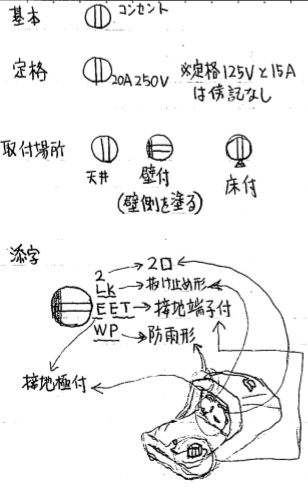 基本 コンセント
定格 20A250V ※定格125Vと15A
は傍記なし
取付場所 天井 壁付 床付
(壁側を塗る)
添字
2 → 2口
LK → 抜け止め形
EET → 接地端子付
WP → 防雨形
接地極付